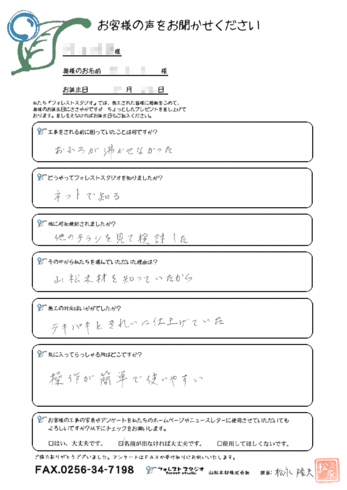 お客様の声をお聞かせください
様
奥様のお名前 様
お誕生日 月 日
私たち『フォレストスタジオ』では、施工された皆様に感謝をこめて、
奥様のお誕生日にささやかですが ちょっとしたプレゼントを差し上げて
おります。差し支えなければお誕生日もご記入ください。
工事をされる前に困っていたことは何ですか？
おふろが沸かせなかった
どうやってフォレストスタジオを知りましたか？
ネットで知る
他に何社検討されましたか？
他のチラシを見て検討した
その中から私たちを選んでいただいた理由は？
山松木材を知っていたから
施工の対応はいかがでしたか？
テキパキときれいに仕上げていた
気に入ってらっしゃる所はどこですか？
操作が簡単で使いやすい
お客様の工事の写真やアンケートを私たちのホームページやニュースレターに使用させていただいても
よろしいですか？以下にチェックをお願いします。
□はい、大丈夫です。 ☑名前が出なければ大丈夫です。 □使用してほしくない。
ご協力ありがとうございました。アンケートはFAXか受け取りにお伺いいたします。
FAX.0256-34-7198 フォレストスタジオ Forest studio 山松木材株式会社 担当: